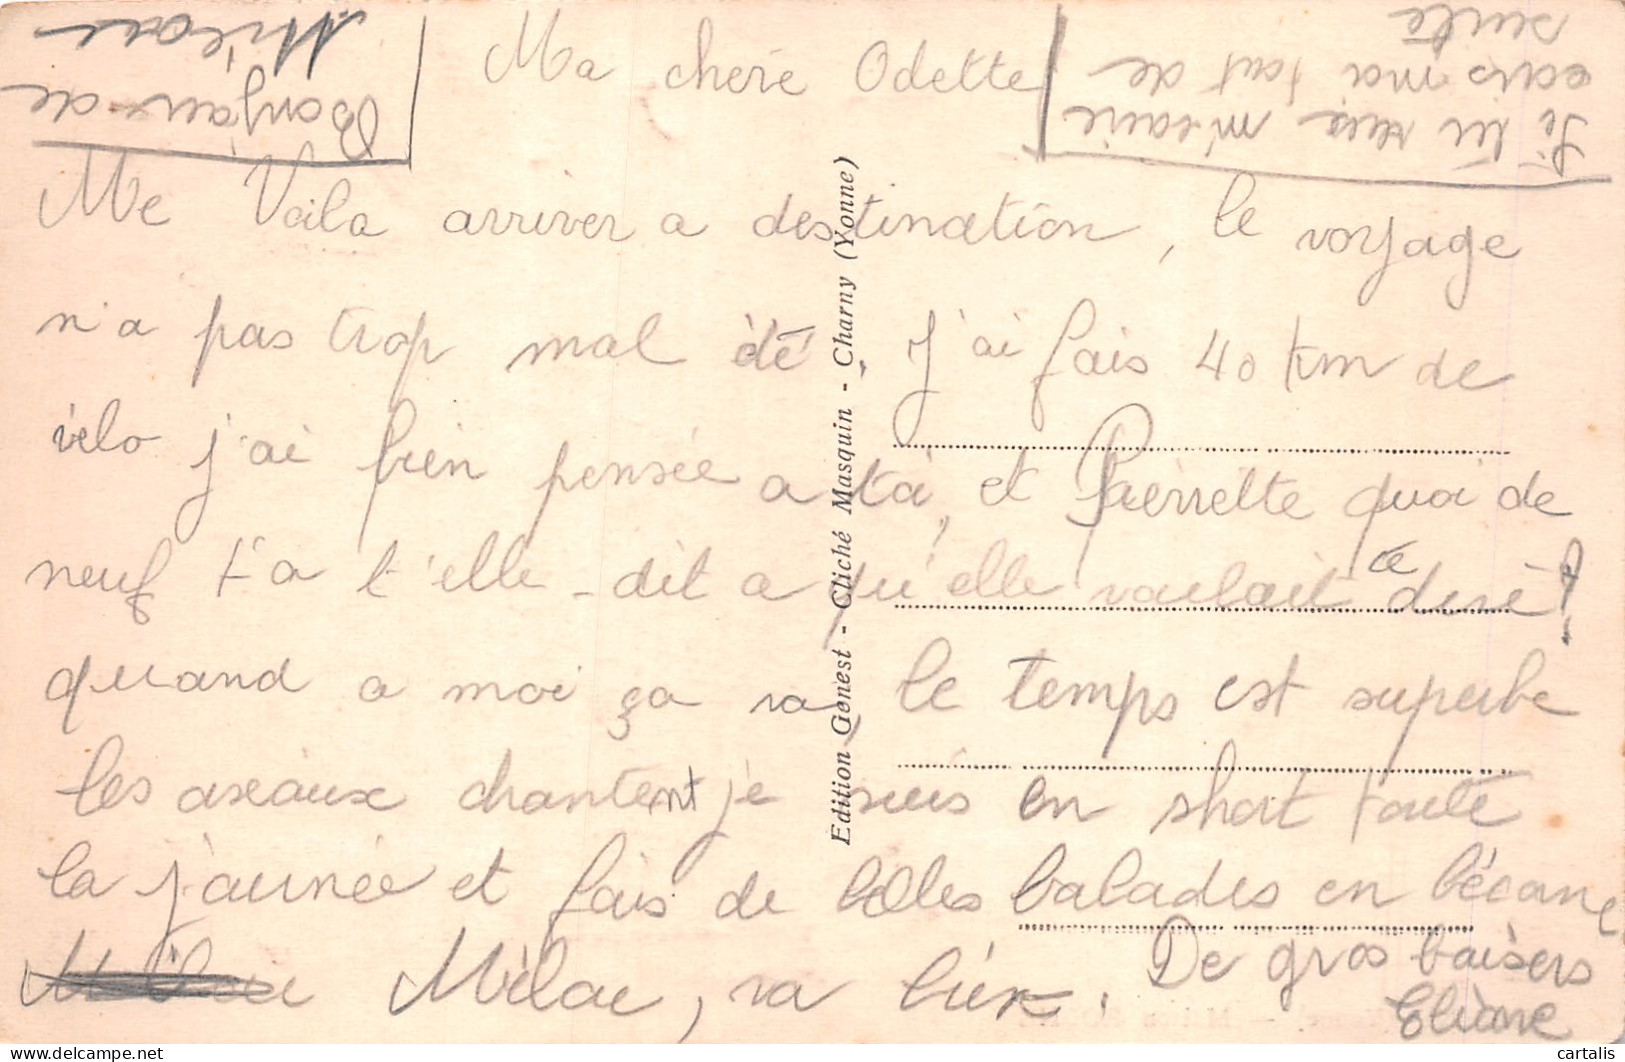 Ma chère Odette
Me Voila arriver a destination, le voyage
n'a pas trop mal été. J'ai fais 40 km de
vélo j'ai bien pensée a ta, et Pierrette quoi de
neuf t'a t'elle dit a qu'elle voulait te dire?!
quand a moi ça va, le temps est superbe
les oiseaux chantent je suis en short toute
la journée et fais de belles balades en bécane
Milou, va bien. De gros baisers
Eliane
Bonjour de
Si tu veux m'ecrire
ecris moi tout de
suite
Edition Genest - Cliché Masquin - Charny (Yonne)
cartalis